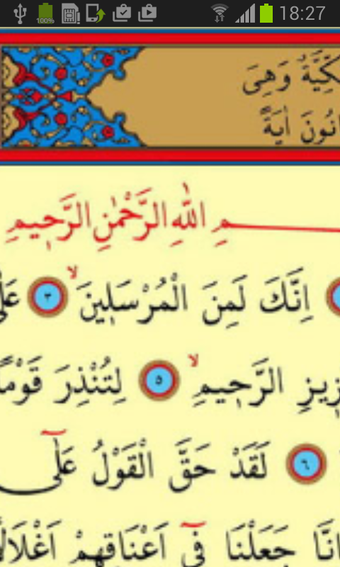 18:27
كِّيَّةٌ وَهِىَ
انُونَ اٰيَةً
مِ اللّٰهِ الرَّحْمٰنِ الرَّحٖيمِ
اِنَّكَ لَمِنَ الْمُرْسَلٖينَ ۙ ٣ عَلٰ
زٖيزِ الرَّحٖيمِ ۙ ٥ لِتُنْذِرَ قَوْمًا
٦ لَقَدْ حَقَّ الْقَوْلُ عَلٰٓى
انَّا جَعَلْنَا فٖٓى اَعْنَاقِهِمْ اَغْلَالًا